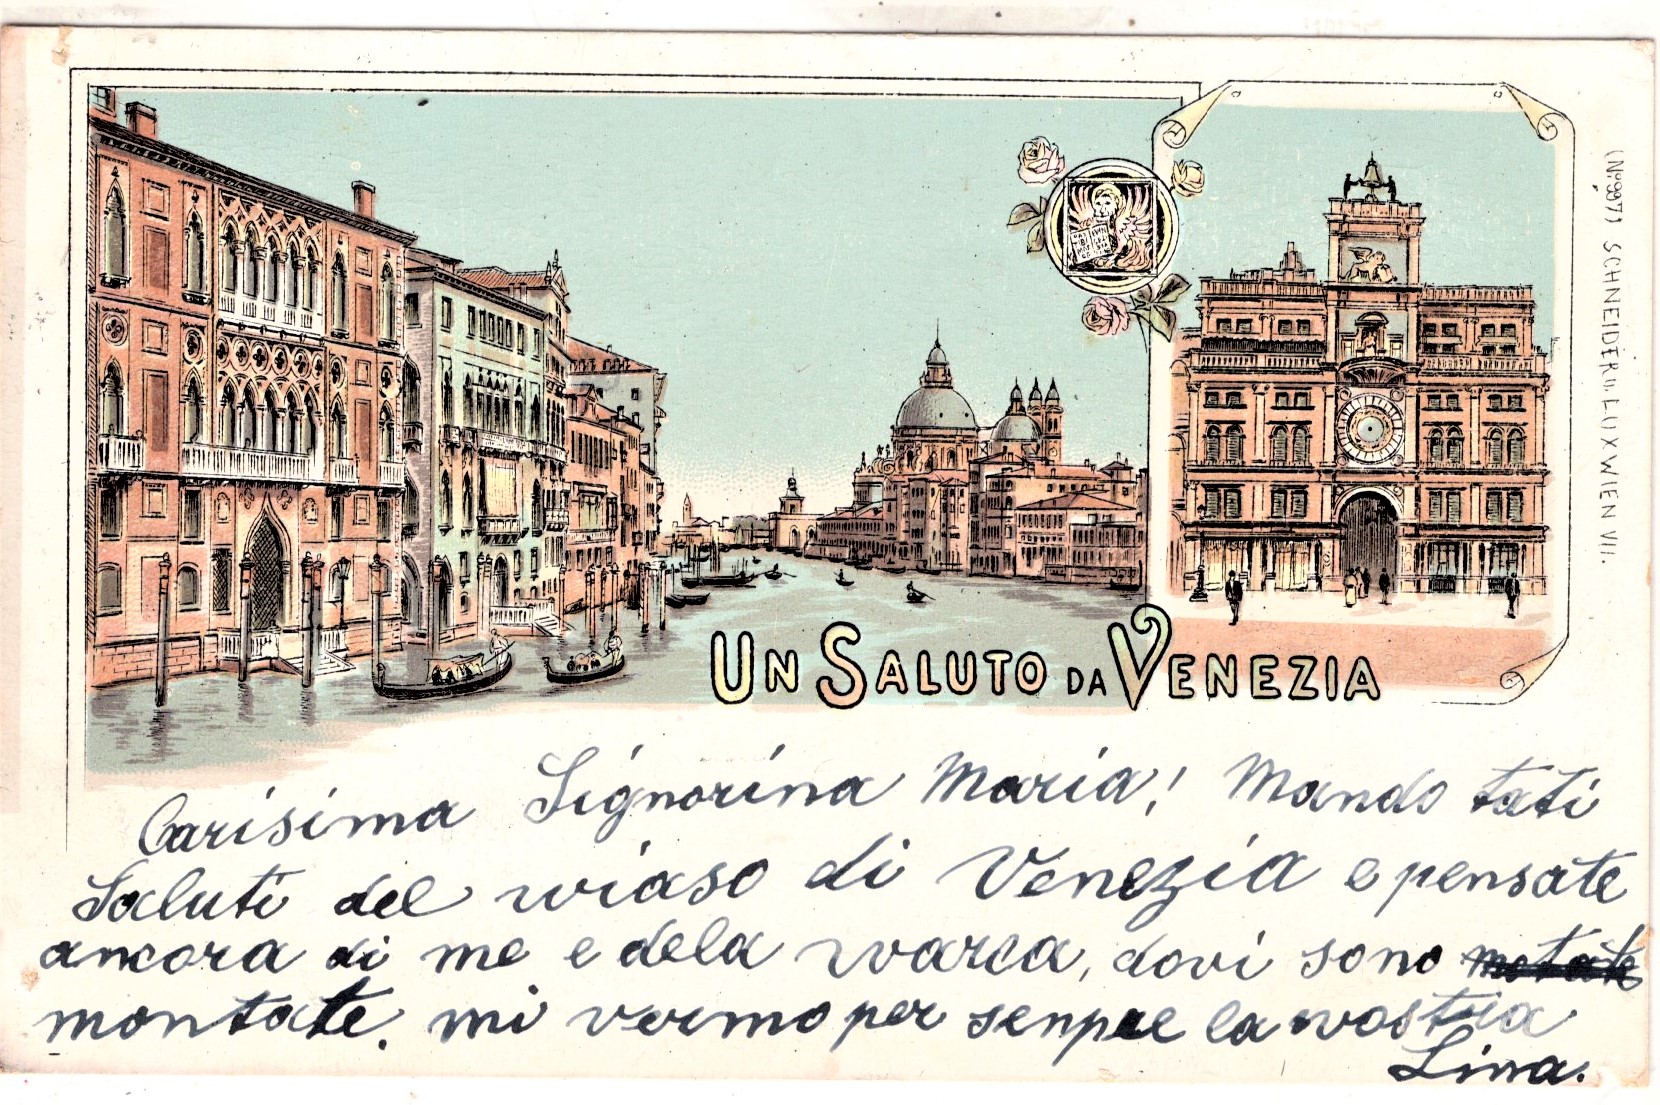 UN SALUTO DA VENEZIA
(Nº 997) SCHNEIDER u. LUX WIEN VII.
Carisima Signorina Maria! Mando tati
Saluti del wiaso di Venezia e pensate
ancora di me e dela warca, dovi sono
montate. mi vermo per senpre la wostra
Lina.